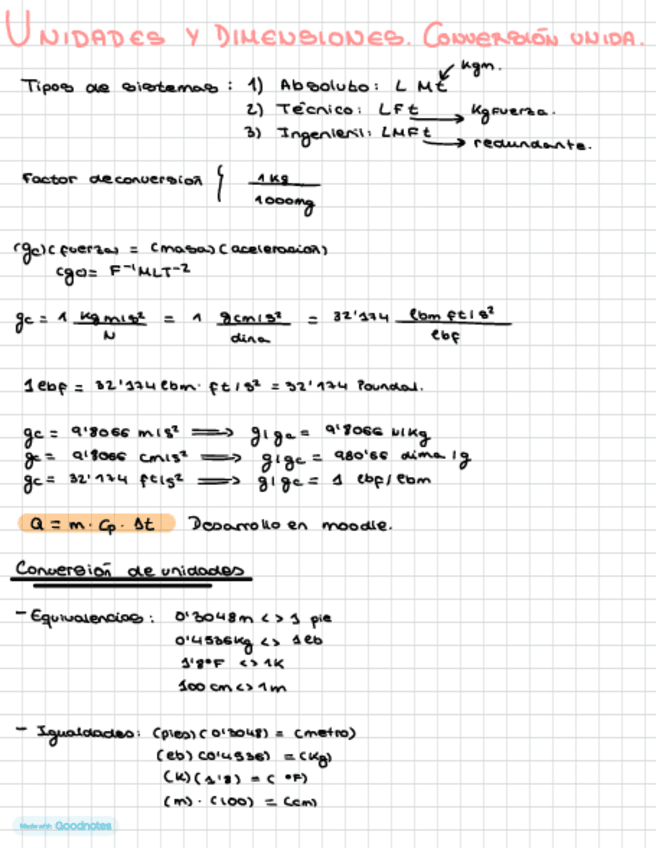 UNIDADES Y DIMENSIONES. CONVERSIÓN UNIDA.
Kgm.
Tipos de sistemas: 1) Absoluto: L M t
2) Técnico: L F t → Kgfuerza.
3) Ingenieril: LMFt → redundante.
Factor de conversión { 1 kg / 1000mg
(gc)(fuerza) = (masa)(aceleración)
(gc)= F⁻¹MLT⁻²
gc = 1 Kg m/s² / N = 1 g cm/s² / dina = 32'174 lbm ft/s² / lbf
1 lbf = 32'174 lbm · ft/s² = 32'174 Poundal.
gc = 9'8066 m/s² ⟹ g/gc = 9'8066 N/Kg
gc = 9'8066 cm/s² ⟹ g/gc = 980'66 dina/g
gc = 32'174 ft/s² ⟹ g/gc = 1 lbf/lbm
Q = m · Cp · Δt Desarrollo en moodle.
Conversión de unidades
- Equivalencias: 0'3048m <> 1 pie
0'4536Kg <> 1lb
1'8°F <> 1K
100 cm <> 1m
- Igualdades: (pies)(0'3048) = (metro)
(lb)(0'4536) = (Kg)
(K)(1'8) = (°F)
(m) · (100) = (cm)
Made with Goodnotes